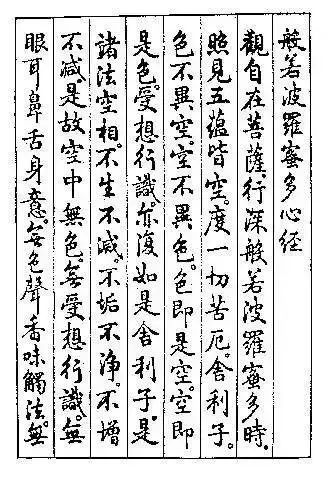 般若波羅蜜多心経
觀自在菩薩。行深般若波羅蜜多時。
照見五蘊皆空。度一切苦厄。舍利子。
色不異空。空不異色。色即是空。空即
是色。受想行識。亦復如是。舍利子。是
諸法空相。不生不滅。不垢不淨。不增
不減。是故空中無色。無受想行識。無
眼耳鼻舌身意。無色聲香味觸法。無